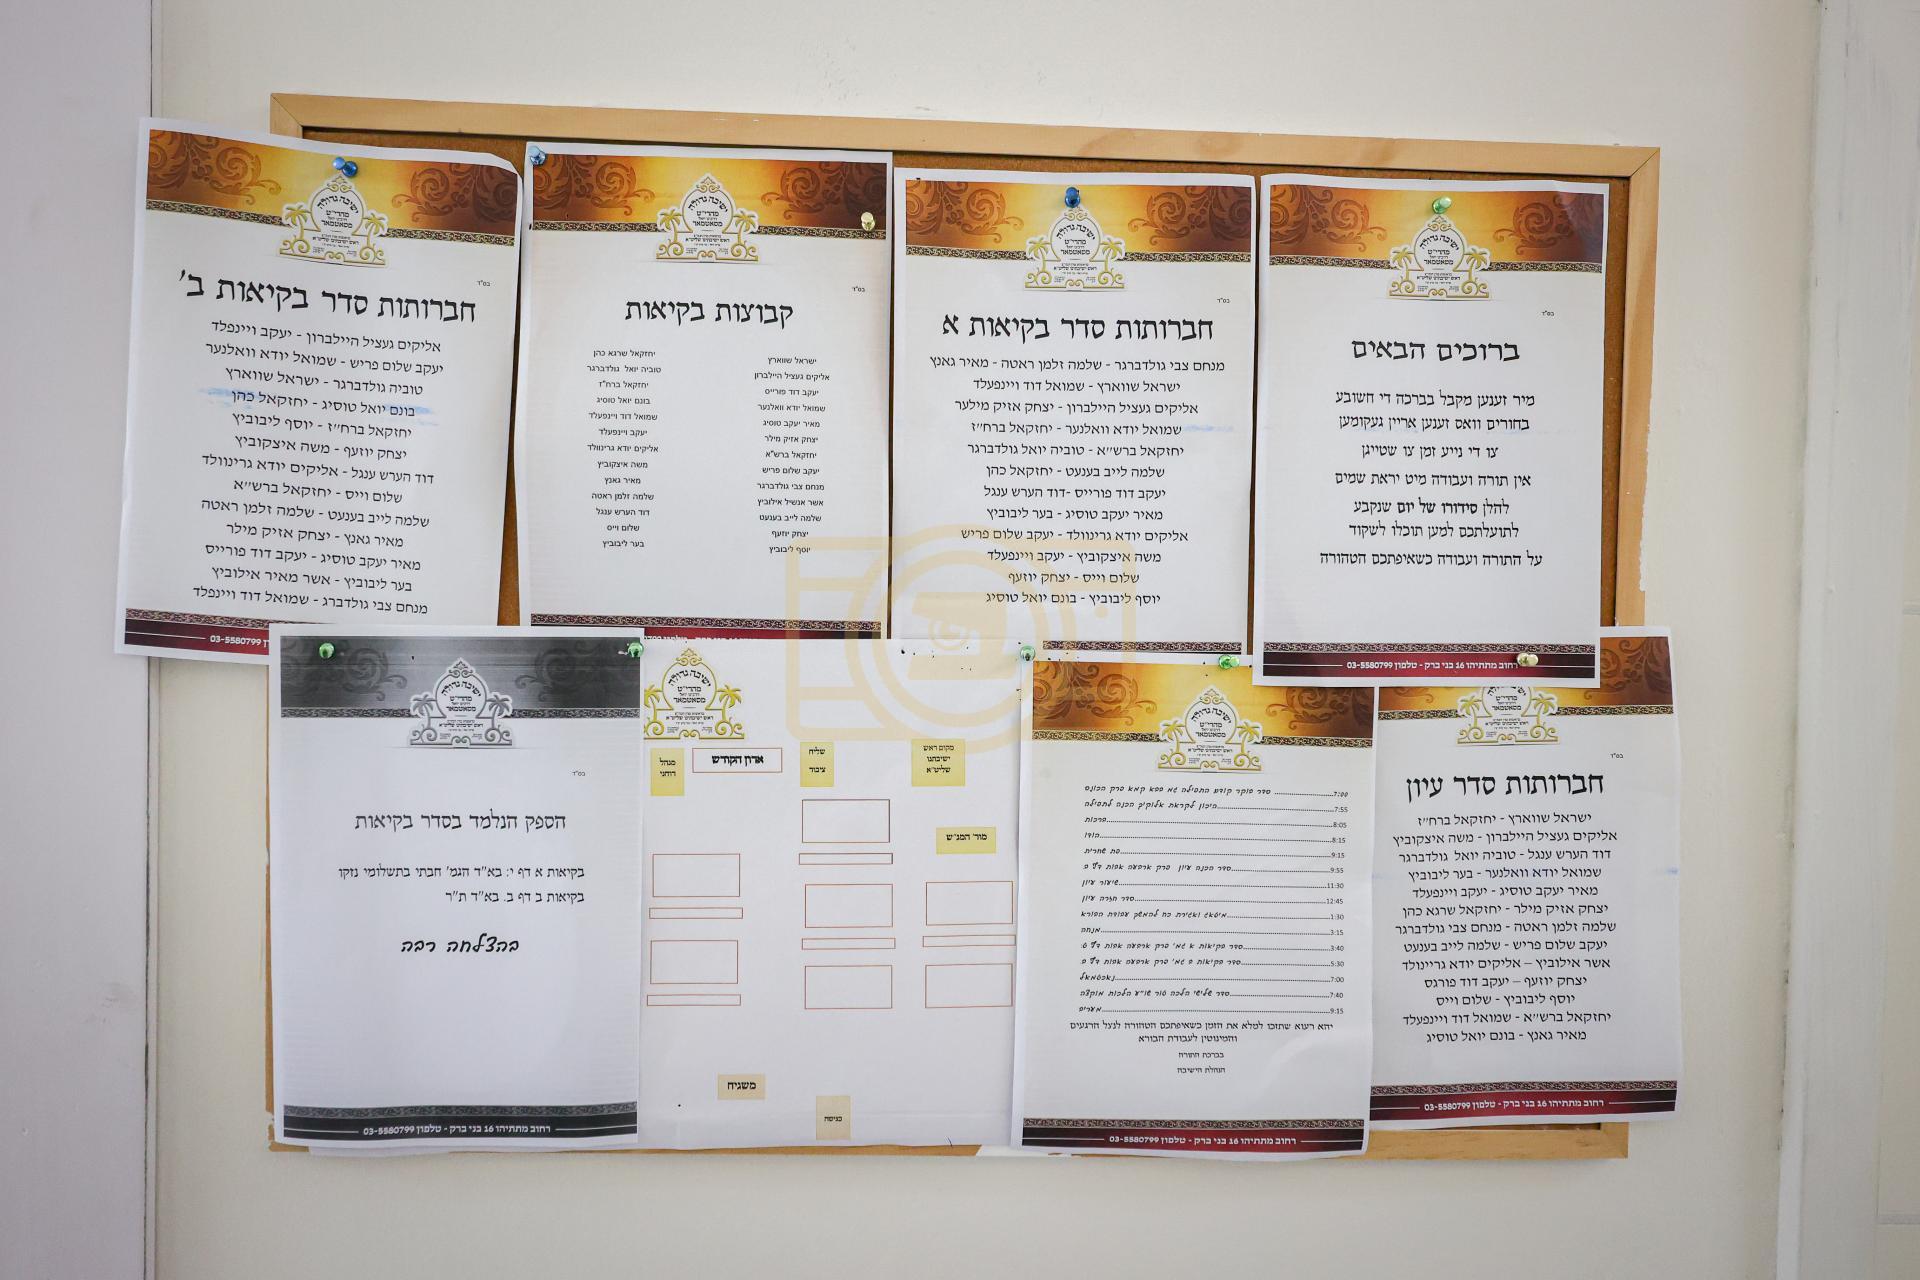 ישיבה גדולה
מהרי"ט
מסאטמאר
בס"ד
ברוכים הבאים
מיר זענען מקבל בברכה די חשובע
בחורים וואס זענען אריין געקומען
צו די נייע זמן צו שטייגן
אין תורה ועבודה מיט יראת שמים
להלן סידורו של יום שנקבע
לתועלתכם למען תוכלו לשקוד
על התורה ועבודה כשאיפתכם הטהורה
רחוב מתתיהו 16 בני ברק - טלפון 03-5580799
ישיבה גדולה
מהרי"ט
מסאטמאר
בס"ד
חברותות סדר בקיאות א
מנחם צבי גולדברגר - שלמה זלמן ראטה - מאיר גאנץ
ישראל שווארץ - שמואל דוד ויינפעלד
אליקים געציל היילברון - יצחק אזיק מילער
שמואל יודא וואלנער - יחזקאל ברח"ז
יחזקאל ברש"א - טוביה יואל גולדברגר
שלמה לייב בענעט - יחזקאל כהן
יעקב דוד פורייס -דוד הערש ענגל
מאיר יעקב טוסיג - בער ליבוביץ
אליקים יודא גרינוולד - יעקב שלום פריש
משה איצקוביץ - יעקב ויינפעלד
שלום וייס - יצחק יוזעף
יוסף ליבוביץ - בונם יואל טוסיג
ישיבה גדולה
מהרי"ט
מסאטמאר
בס"ד
קבוצות בקיאות
ישראל שווארץ
אליקים געציל היילברון
יעקב דוד פורייס
שמואל יודא וואלנער
מאיר יעקב טוסיג
יצחק אזיק מילר
יחזקאל ברש"א
יעקב שלום פריש
מנחם צבי גולדברגר
אשר אנשיל אילוביץ
שלמה לייב בענעט
יצחק יוזעף
יוסף ליבוביץ
יחזקאל שרגא כהן
טוביה יואל גולדברגר
יחזקאל ברח"ז
בונם יואל טוסיג
שמואל דוד ויינפעלד
יעקב ויינפעלד
אליקים יודא גרינוולד
משה איצקוביץ
מאיר גאנץ
שלמה זלמן ראטה
דוד הערש ענגל
שלום וייס
בער ליבוביץ
ישיבה גדולה
מהרי"ט
מסאטמאר
בס"ד
חברותות סדר בקיאות ב'
אליקים געציל היילברון - יעקב ויינפלד
יעקב שלום פריש - שמואל יודא וואלנער
טוביה גולדברגר - ישראל שווארץ
בונם יואל טוסיג - יחזקאל כהן
יחזקאל ברח"ז - יוסף ליבוביץ
יצחק יוזעף - משה איצקוביץ
דוד הערש ענגל - אליקים יודא גרינוולד
שלום וייס - יחזקאל ברש"א
שלמה לייב בענעט - שלמה זלמן ראטה
מאיר גאנץ - יצחק אזיק מילר
מאיר יעקב טוסיג - יעקב דוד פורייס
בער ליבוביץ - אשר מאיר אילוביץ
מנחם צבי גולדברג - שמואל דוד ויינפלד
03-5580799
ישיבה גדולה
מהרי"ט
מסאטמאר
בס"ד
חברותות סדר עיון
ישראל שווארץ - יחזקאל ברח"ז
אליקים געציל היילברון - משה איצקוביץ
דוד הערש ענגל - טוביה יואל גולדברגר
שמואל יודא וואלנער - בער ליבוביץ
מאיר יעקב טוסיג - יעקב ויינפעלד
יצחק אזיק מילר - יחזקאל שרגא כהן
שלמה זלמן ראטה - מנחם צבי גולדברגר
יעקב שלום פריש - שלמה לייב בענעט
אשר אילוביץ – אליקים יודא גריינוולד
יצחק יוזעף – יעקב דוד פורגס
יוסף ליבוביץ - שלום וייס
יחזקאל ברש"א - שמואל דוד ויינפעלד
מאיר גאנץ - בונם יואל טוסיג
רחוב מתתיהו 16 בני ברק - טלפון 03-5580799
ישיבה גדולה
מהרי"ט
מסאטמאר
7:00 סדר בוקר קודם התפילה גמ' בבא קמא פרק הכונס
7:55 היכון לקראת אלוקיך הכנה לתפילה
8:05 ברכות
8:15 הודו
9:15 פת שחרית
9:55 סדר הכנה עיון פרק ארבעה אבות דף ב
11:30 שיעור עיון
12:45 סדר חזרה עיון
1:30 מיטאג ואגירת כח להמשך עבודת הבורא
3:15 מנחה
3:40 סדר בקיאות א גמ' פרק ארבעה אבות דף ט:
5:30 סדר בקיאות ב גמ' פרק ארבעה אבות דף ב
7:00 נאכטמאל
7:40 סדר שלישי הלכה טור שו"ע הלכות מוקצה
9:15 מעריב
יהא רעוא שתזכו למלא את הזמן כשאיפתכם הטהורה לנצל הרגעים
והמינוטין לעבודת הבורא
בברכת התורה
הנהלת הישיבה
רחוב מתתיהו 16 בני ברק - טלפון 03-5580799
ישיבה גדולה
מהרי"ט
מסאטמאר
מקום ראש
ישיבתנו
שליט"א
שליח
ציבור
ארון הקודש
מנהל
רוחני
מוד' המנ"ש
משגיח
כניסה
ישיבה גדולה
מהרי"ט
מסאטמאר
בס"ד
הספק הנלמד בסדר בקיאות
בקיאות א דף י: בא"ד הגמ' חבתי בתשלומי נזקו
בקיאות ב דף ב. בא"ד ת"ר
בהצלחה רבה
רחוב מתתיהו 16 בני ברק - טלפון 03-5580799